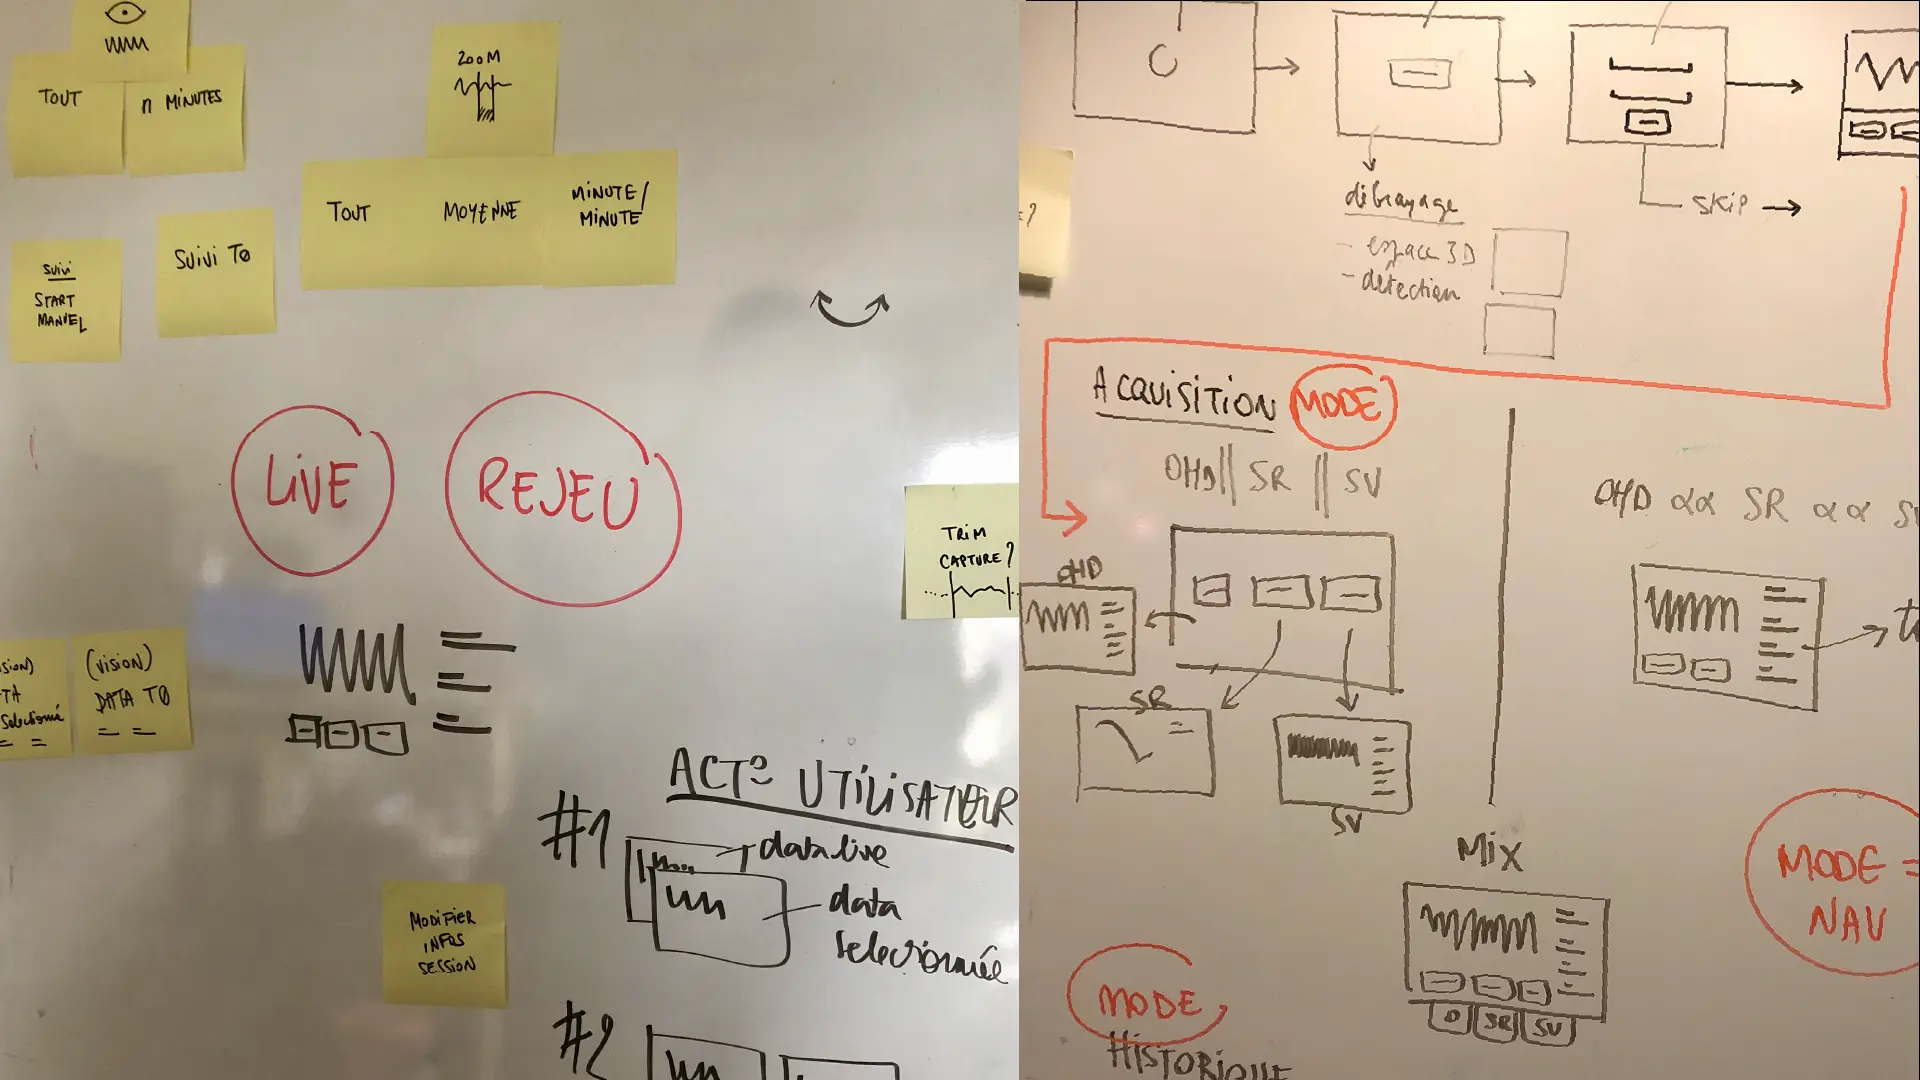 TOUT
n MINUTES
ZOOM
TOUT
MOYENNE
MINUTE/
MINUTE
SUIVI
START
MANUEL
SUIVI T0
LIVE
REJEU
TRIM
CAPTURE?
(VISION)
DATA T0
ACT° UTILISATEUR
#1
data live
data
selectionnée
MODIFIER
INFOS
SESSION
#2
SKIP
débrayage
- espace 3D
- détection
ACQUISITION MODE
OHD || SR || SV
OHD
SR
SV
OHD αα SR αα
MIX
D SR SV
MODE =
NAV
MODE
HISTORIQUE